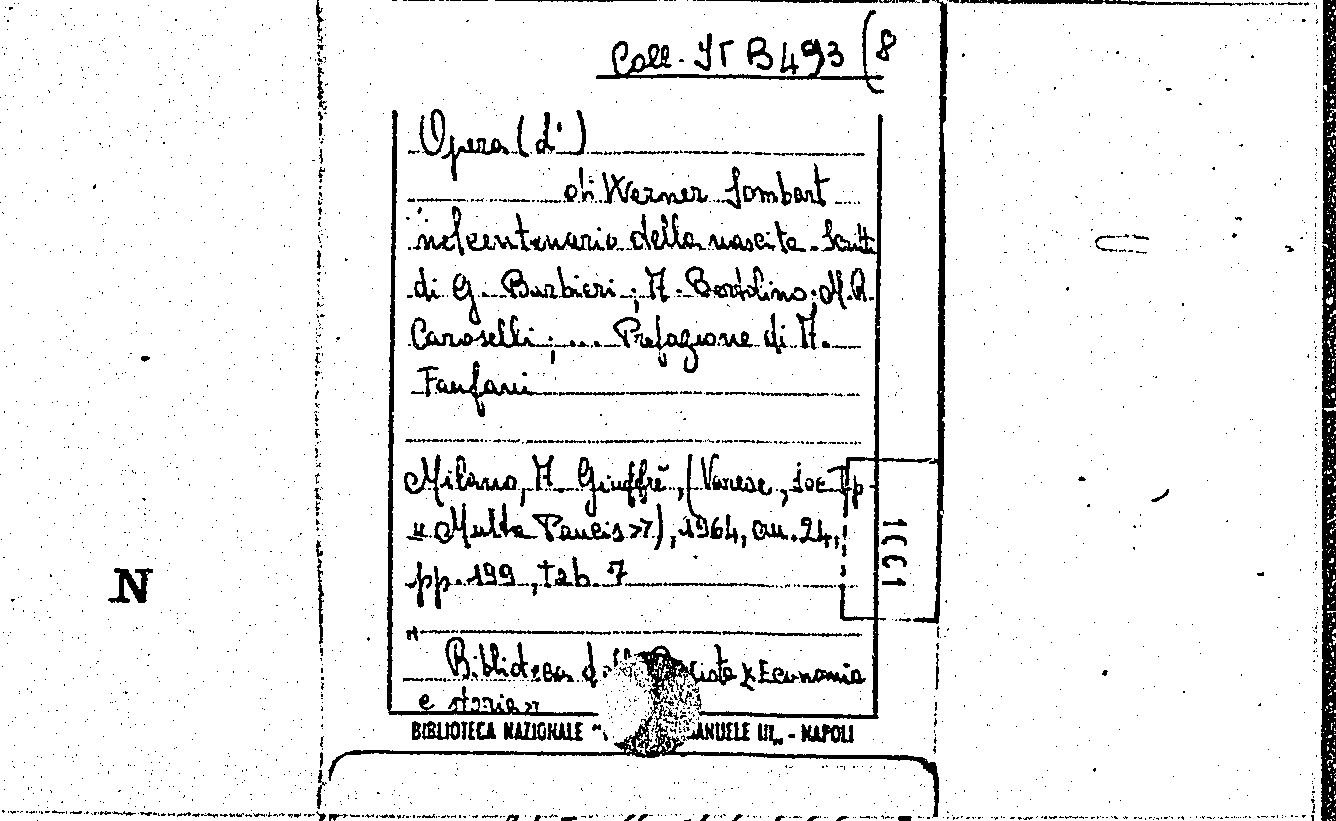 Coll. IT B 493 (8
Opera (d')
di Werner Sombart
nel centenario della nascita. Scritti
di G. Barbieri; A. Bortolino; M. R.
Caroselli; ... Prefazione di A.
Fanfani
Milano, A. Giuffrè, (Varese, soc. Tip
« Multa Paucis »), 1964, cm. 24,
pp. 199, tab. 7
N
Biblioteca Economia
e storia »
BIBLIOTECA NAZIONALE " ANUELE III„ - NAPOLI